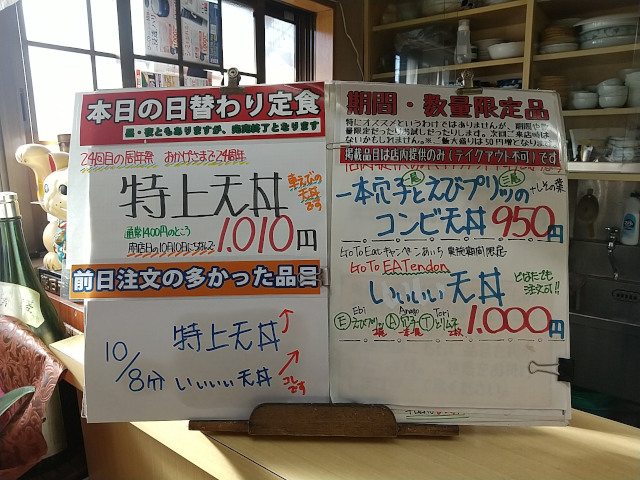 本日の日替わり定食
昼・夜ともありますが、肉肉終了となります
24回目の周年祭 おかげさまで24周年
特上天丼
車えびの
天丼
です
通常1400円のところ
周年日の10月10日にちなんで
1,010円
前日注文の多かった品目
10/8分
特上天丼
いいいい天丼
コレです
期間・数量限定品
特にオススメというわけではありませんが、期間や数
量限定だったりお試しだったりします。次回ご来店時には
ないかもしれません。※ご飯大盛りは50円増となります
掲載品目は店内提供のみ(テイクアウト不可)です
一本穴子とえびプリッの
二尾
+しその葉
コンビ天丼 950円
Go To Eatキャンペーンあいち 実施期間限定
Go To EATendon
いいいい天丼
どなたでも
注文可!!
Ebi Anago Tori
Eえびプリッ A穴子 Tとりムネ
1,000円